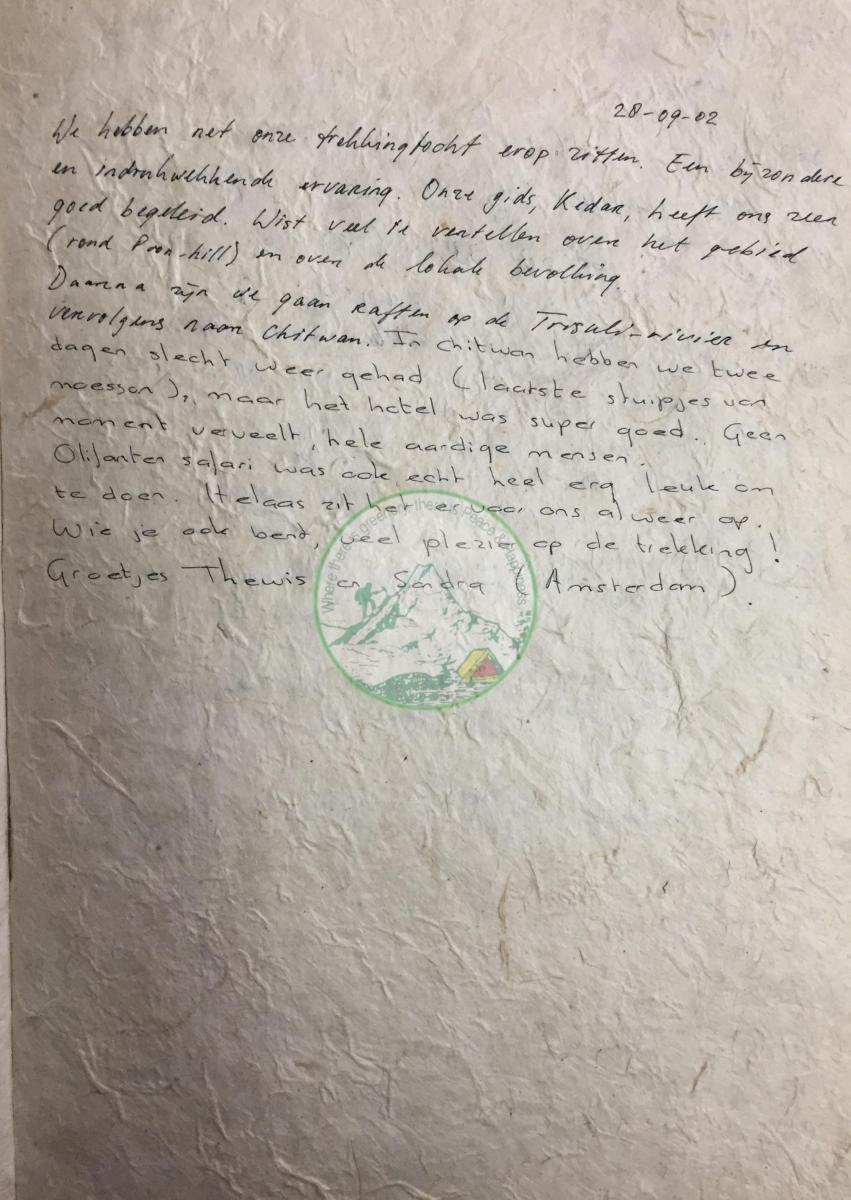 28-09-02
We hebben net onze trekkingtocht erop zitten. Een bijzondere
en indrukwekkende ervaring. Onze gids, Kedar, heeft ons zeer
goed begeleid. Wist veel te vertellen over het gebied
(rond Poon-hill) en over de lokale bevolking.
Daarna zijn we gaan raften op de Trisuli-rivier en
vervolgens naar Chitwan. In Chitwan hebben we twee
dagen slecht weer gehad (laatste stuipjes van
moesson), maar het hotel was super goed. Geen
moment verveelt, hele aardige mensen.
Olifanten safari was ook echt heel erg leuk om
te doen. Helaas zit het er voor ons alweer op.
Wie je ook bent, veel plezier op de trekking!
Groetjes Thewis en Sandra (Amsterdam).
Where there is green there is Peace & Happiness